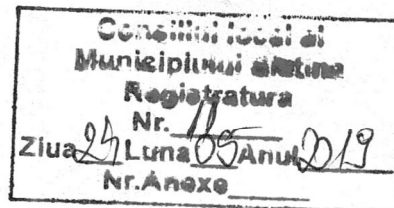 Consiliul local al
Municipiului Slatina
Registratura
Nr. 11
Ziua 24 Luna 05 Anul 2019
Nr.Anexe